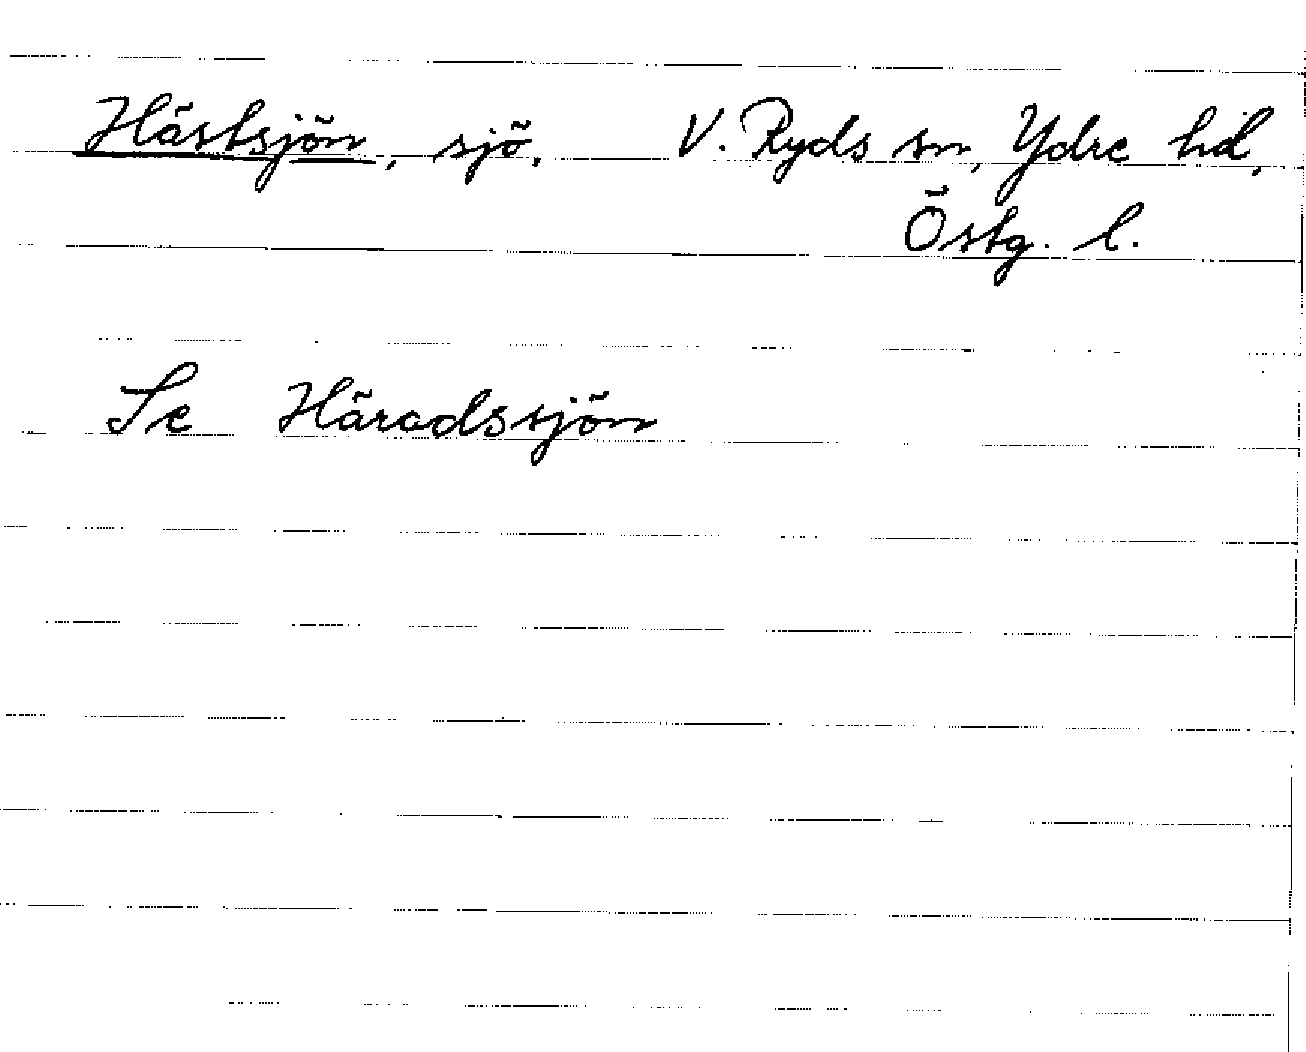 Hästsjön, sjö. V. Ryds sn, Ydre hd,
Östg. l.
Se Häradssjön